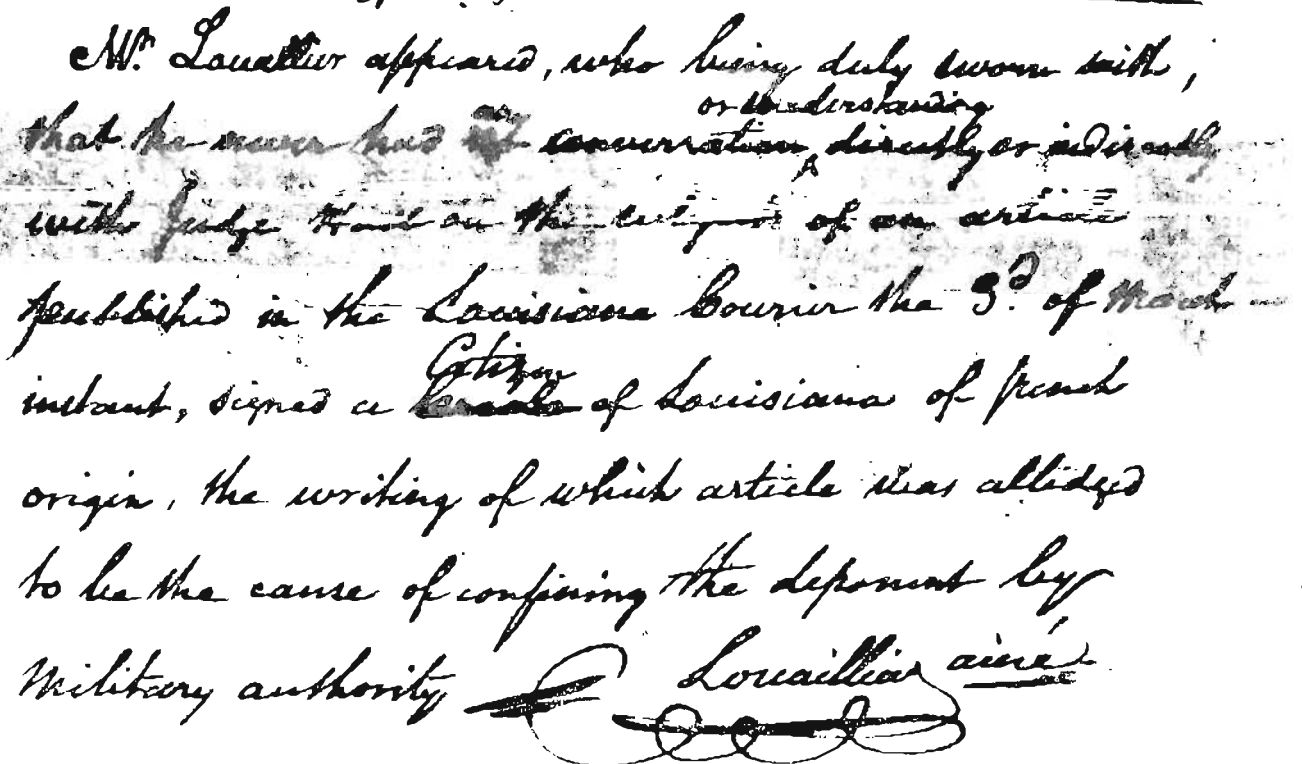 Mr. Louallier appeared, who being duly sworn saith,
or understanding
that he never had any conversation, directly or indirectly
with Judge Hall on the subject of an article
published in the Louisiana Courier the 3d. of March
Citizen
instant, signed a Creole of Louisiana of french
origin, the writing of which article was alledged
to be the cause of confining the deponent by
Military authority Louaillier ainé